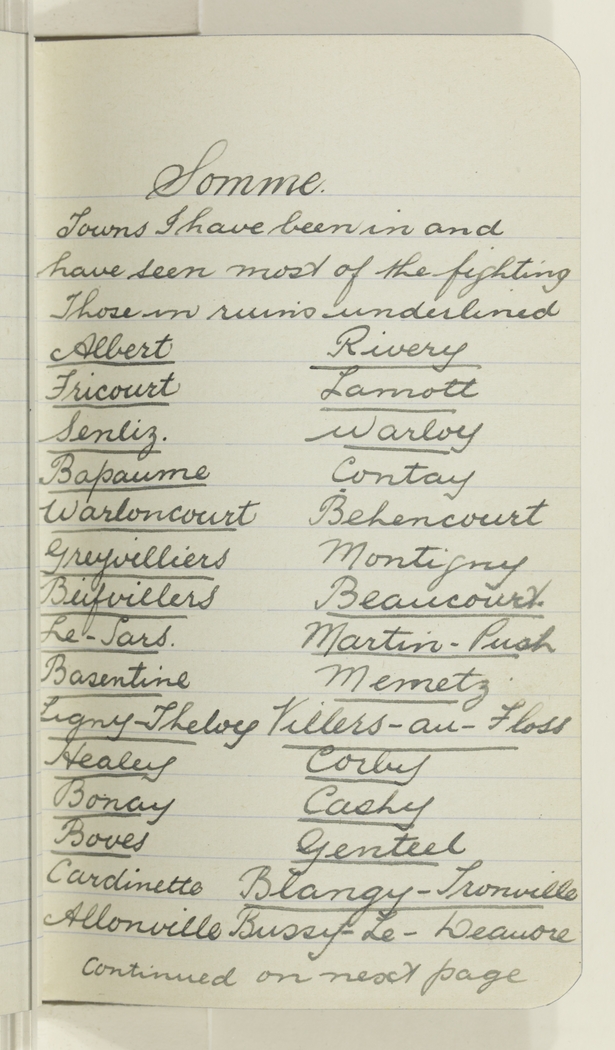 Somme.
Towns I have been in and
have seen most of the fighting
Those in ruins underlined
Albert Rivery
Fricourt Lamott
Senliz. Warloy
Bapaume Contay
Warloncourt Behencourt
Greyvilliers Montigny
Beifvillers Beaucourt.
Le-Sars. Martin-Push
Basentine Memetz
Ligny-Theloy Villers-au-Floss
Healey Corby
Bonay Cashy
Boves Genteel
Cardinette Blangy-Tronville
Allonville Bussy-Le-Deauore
Continued on next page